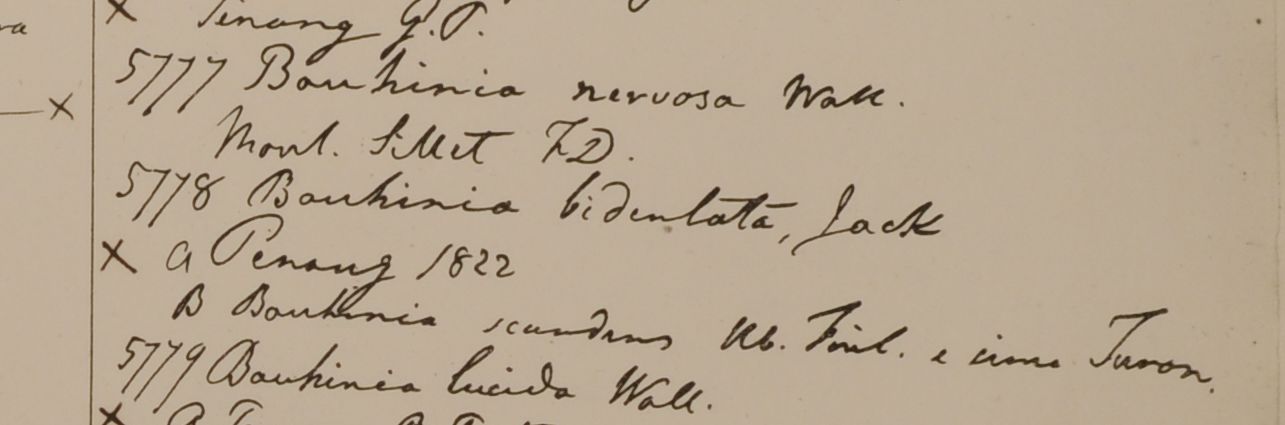 × Penang G.P.
5777 Bauhinia nervosa Wall.
Mont. Sillet F.D.
5778 Bauhinia bidentata, Jack
× a Penang 1822
B Bauhinia scandens Hb. Finl. e Turon.
5779 Bauhinia lucida Wall.